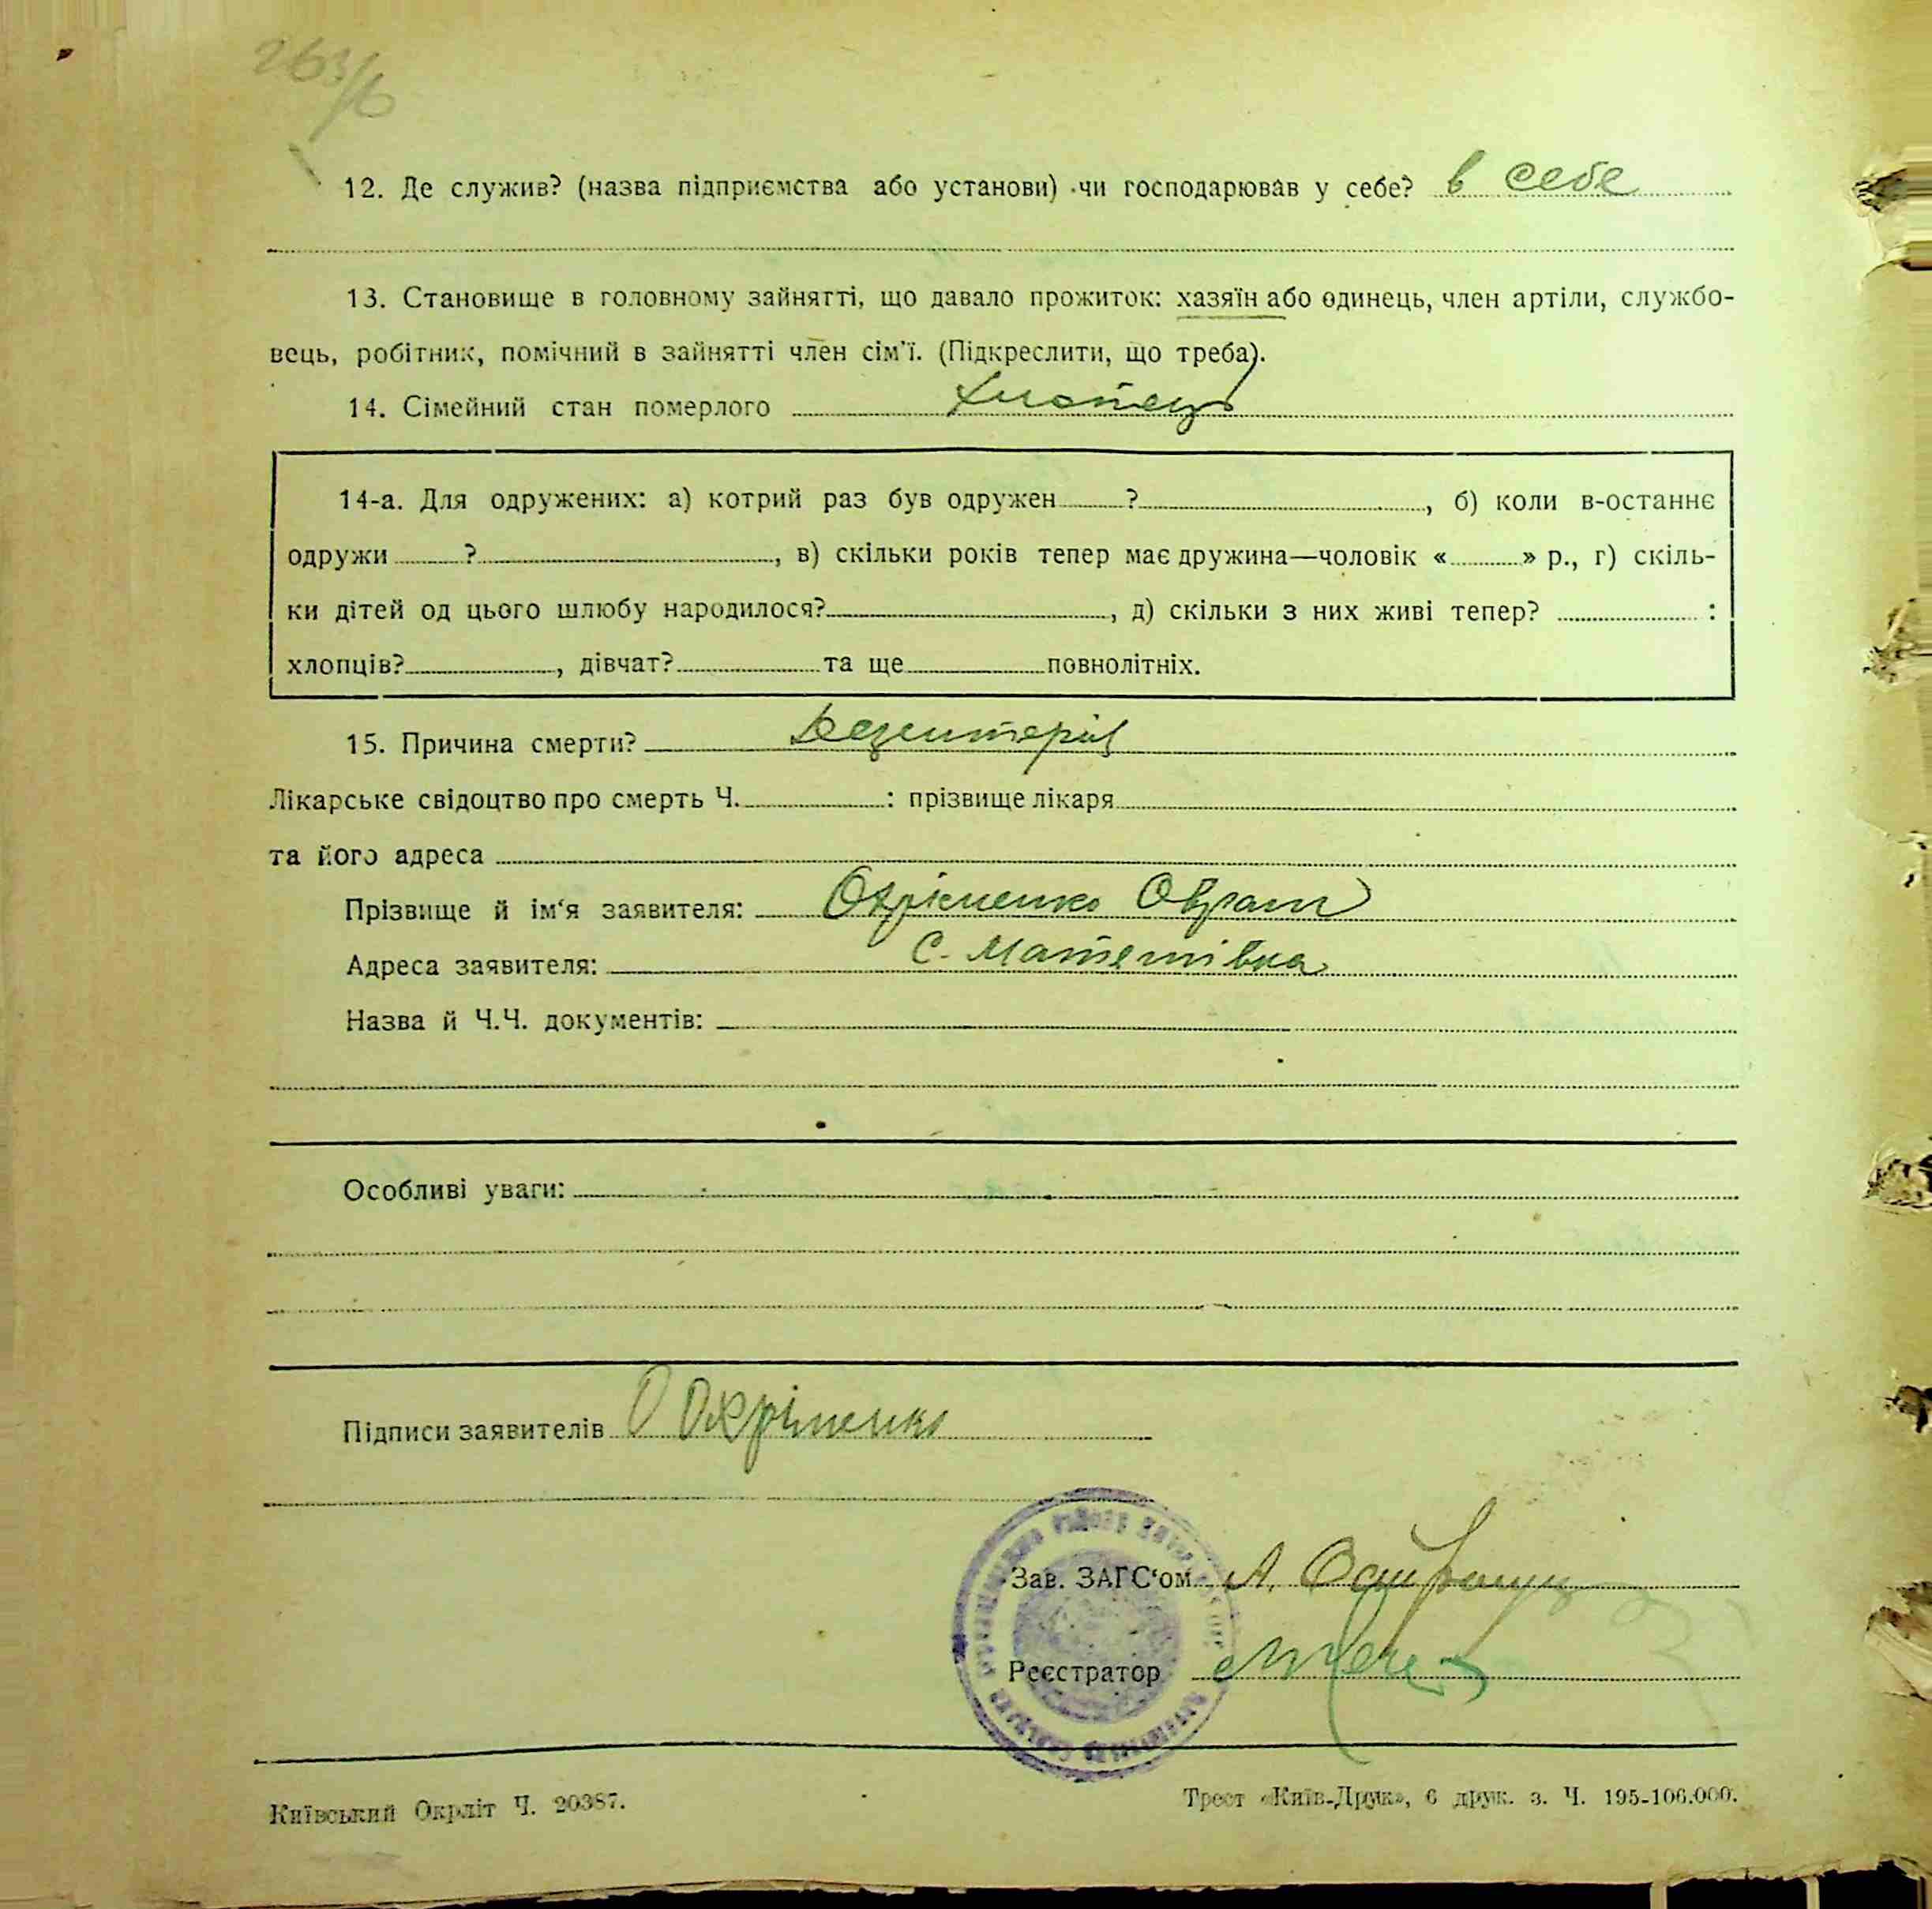 263/6
12. Де служив? (назва підприємства або установи) чи господарював у себе? в себе
13. Становище в головному зайнятті, що давало прожиток: хазяїн або одинець, член артіли, службо-
вець, робітник, помічний в зайнятті член сім'ї. (Підкреслити, що треба).
14. Сімейний стан померлого хлопець
14-а. Для одружених: а) котрий раз був одружен ? , б) коли в-останнє
одружи ? , в) скільки років тепер має дружина—чоловік « » р., г) скіль-
ки дітей од цього шлюбу народилося? , д) скільки з них живі тепер? :
хлопців? , дівчат? та ще повнолітніх.
15. Причина смерти? Дезинтерія
Лікарське свідоцтво про смерть Ч. : прізвище лікаря
та його адреса
Прізвище й ім'я заявителя: Охріменко
Адреса заявителя: С.
Назва й Ч.Ч. документів:
Особливі уваги:
Підписи заявителів О Охріменко
Зав. ЗАГС'ом А.
Реєстратор
Київський Окрліт Ч. 20387.
Трест «Київ-Друк», 6 друк. з. Ч. 195-106.000.